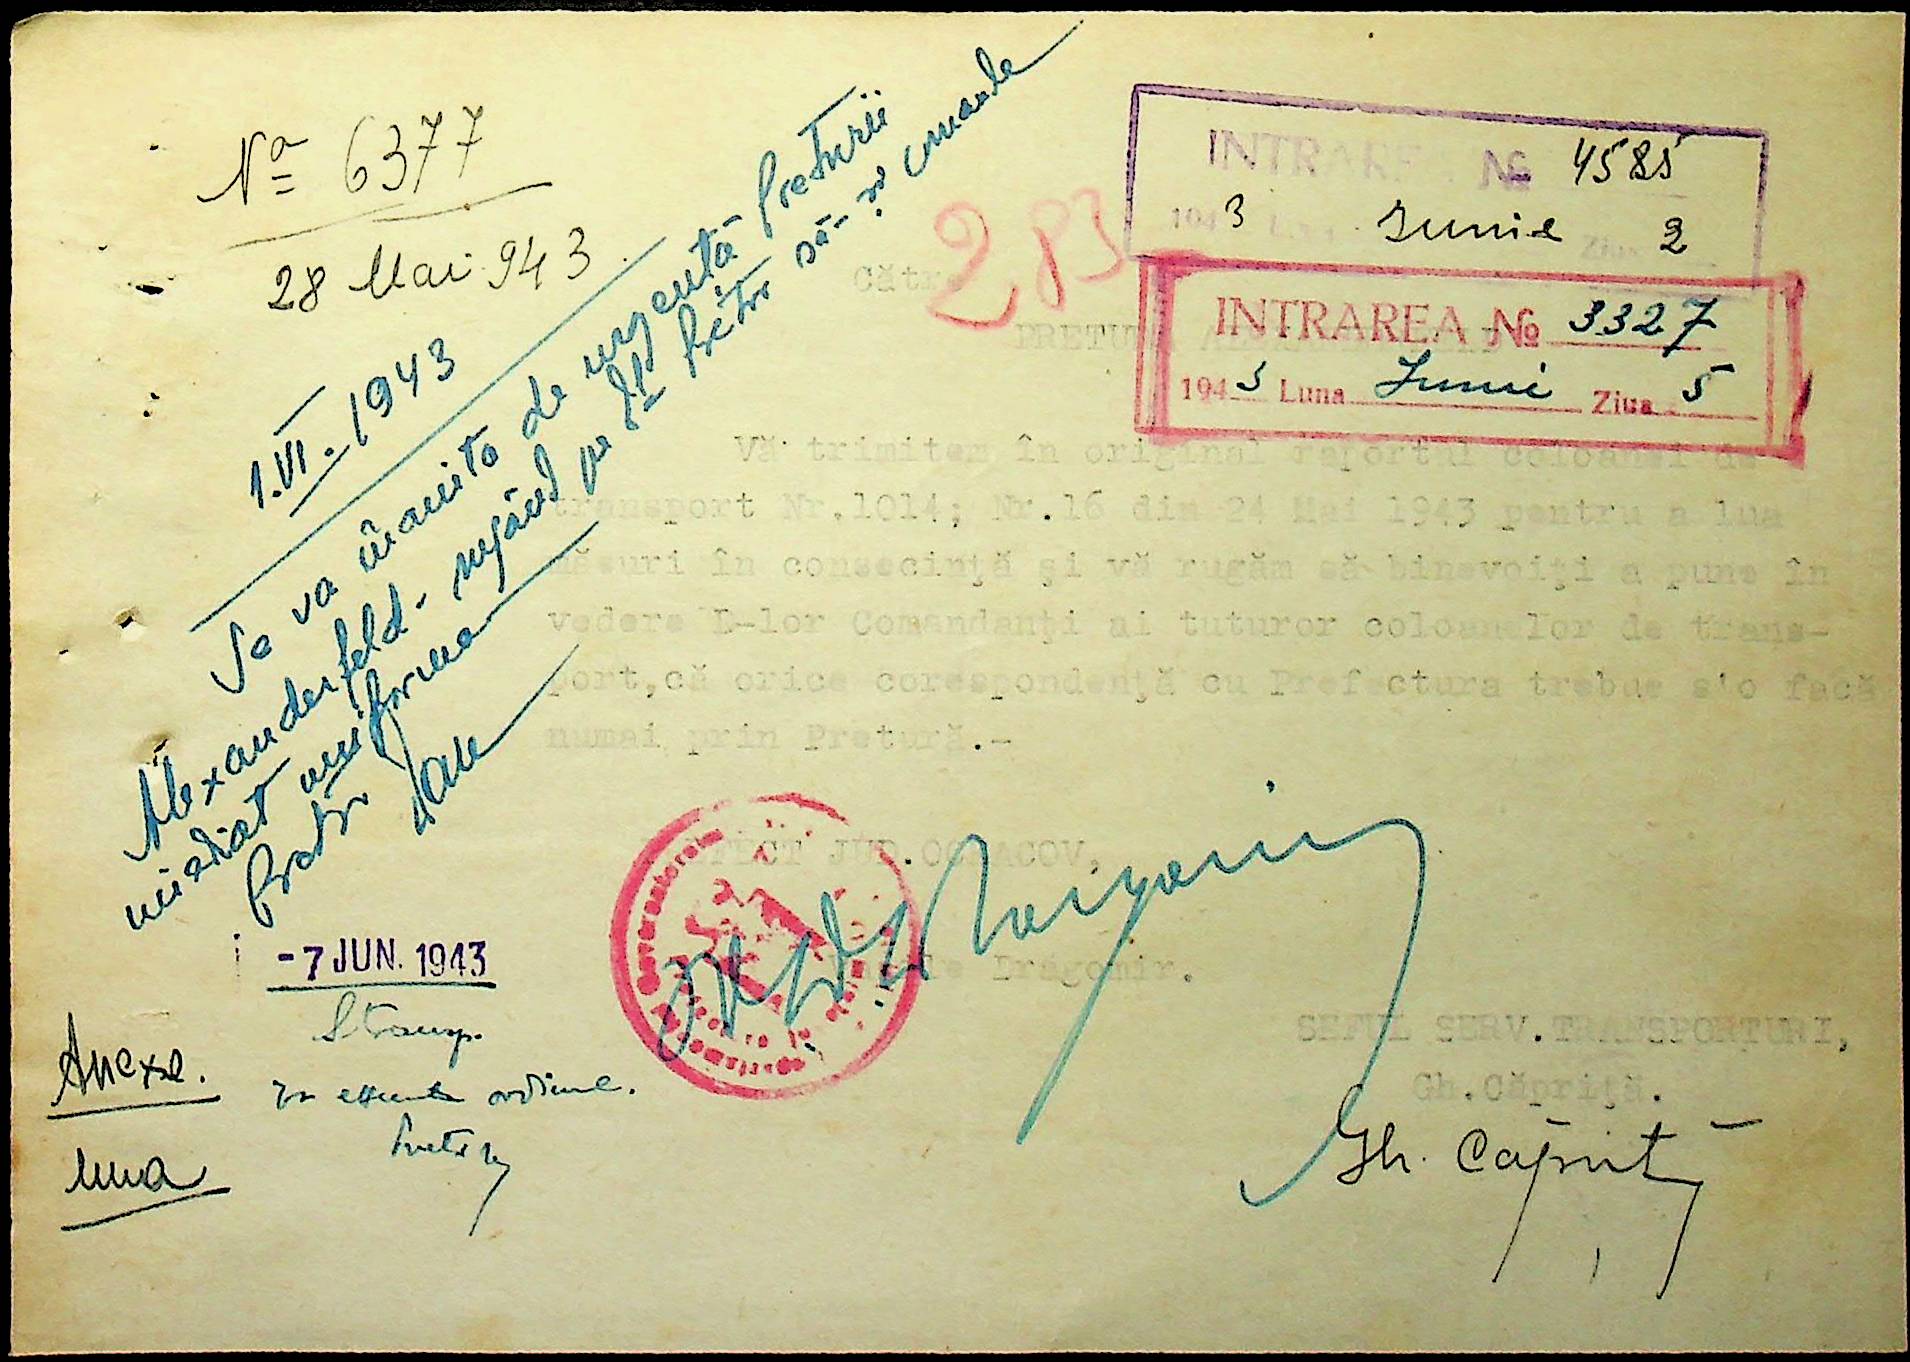 Nº 6377
28 Mai 943.
INTRAREA № 4585
1943 Luna Iunie Ziua 2
283
INTRAREA № 3327
1943 Luna Iunie Ziua 5
Către
PRETURA
1.VI.1943
Se va înainta de urgentă Preturii
Alexanderfeld - rugând pe Dl Pretor să-
mediat uniforma
Pretor
Vă trimitem în original raportul coloanei de
transport Nr.1014; Nr.16 din 24 Mai 1943 pentru a lua
măsuri în consecinţă şi vă rugăm să binevoiţi a pune în
vedere D-lor Comandanţi ai tuturor coloanelor de trans-
port,că orice corespondenţă cu Prefectura trebue s'o facă
numai prin Pretură.-
PREFECT JUD.OCEACOV,
Vasile Dragomir.
Guvernatorul
-7 JUN. 1943
Transp.
ordine.
Anexe.
una
SEFUL SERV.TRANSPORTURI,
Gh.Căpriţă.
Gh. Căpriţă